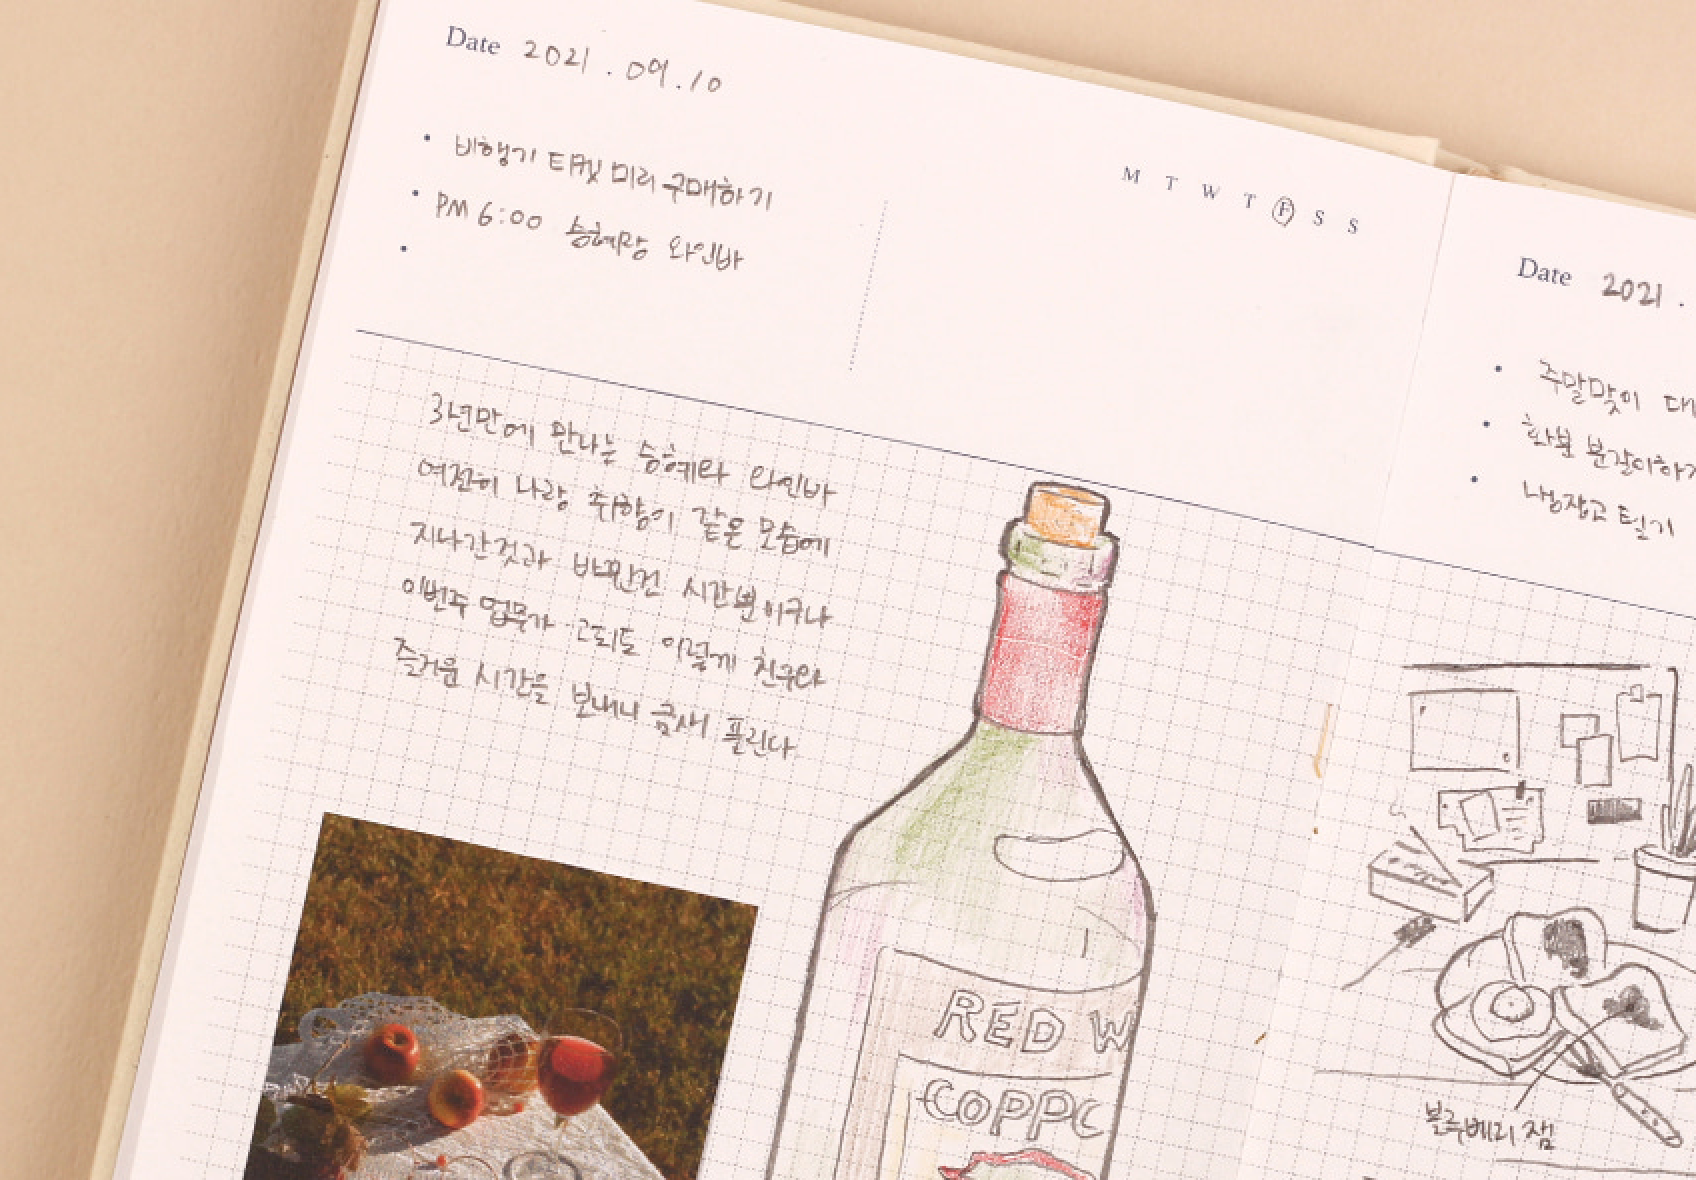 Date 2021.09.10
• 비행기 티켓 미리 구매하기
• PM 6:00 승혜랑 와인바
•
M T W T F S S
3년만에 만나는 승혜와 와인바
여전히 나랑 취향이 같은 모습에
지나간것과 바뀐건 시간뿐이구나
이번주 업무가 고되도 이렇게 친구와
즐거운 시간을 보내니 금새 풀린다
RED W
COPPO
Date 2021.
• 주말맞이 대
• 화분 분갈이하기
• 냉장고 털기
블루베리 잼